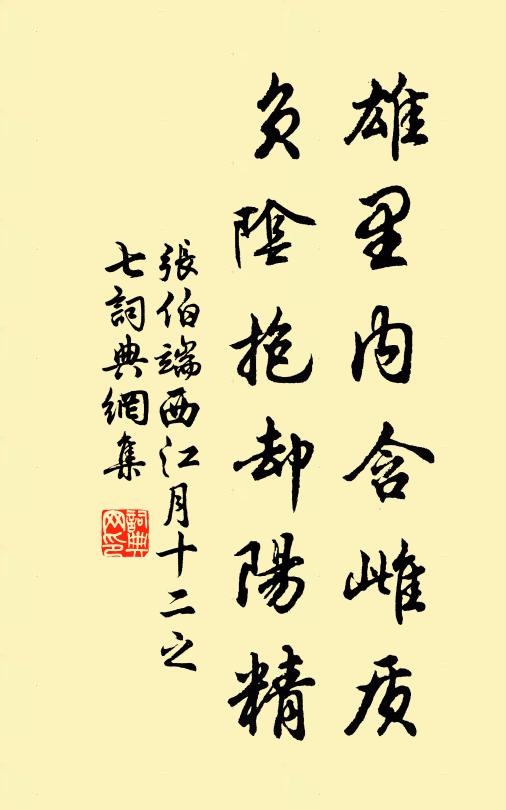 雄里内含雌质
负陰抱却陽精
張伯端西江月十二之
七詞典網集
詞典
网印